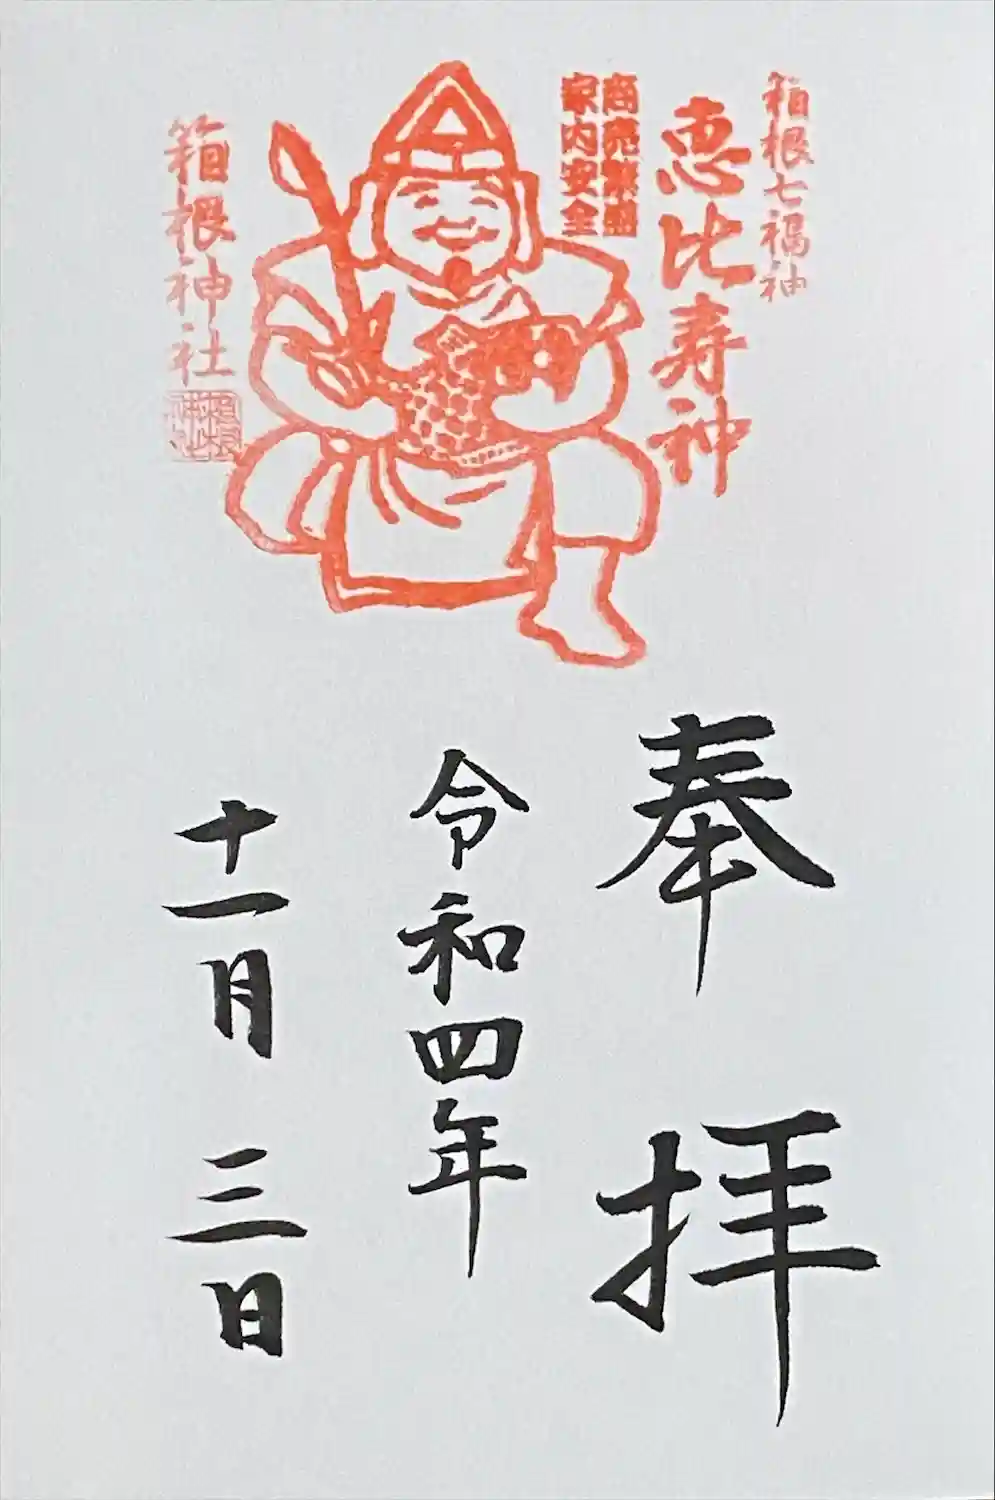 箱根七福神
恵比寿神
商売繁盛
家内安全
箱根神社
奉拝
令和四年
十一月三日